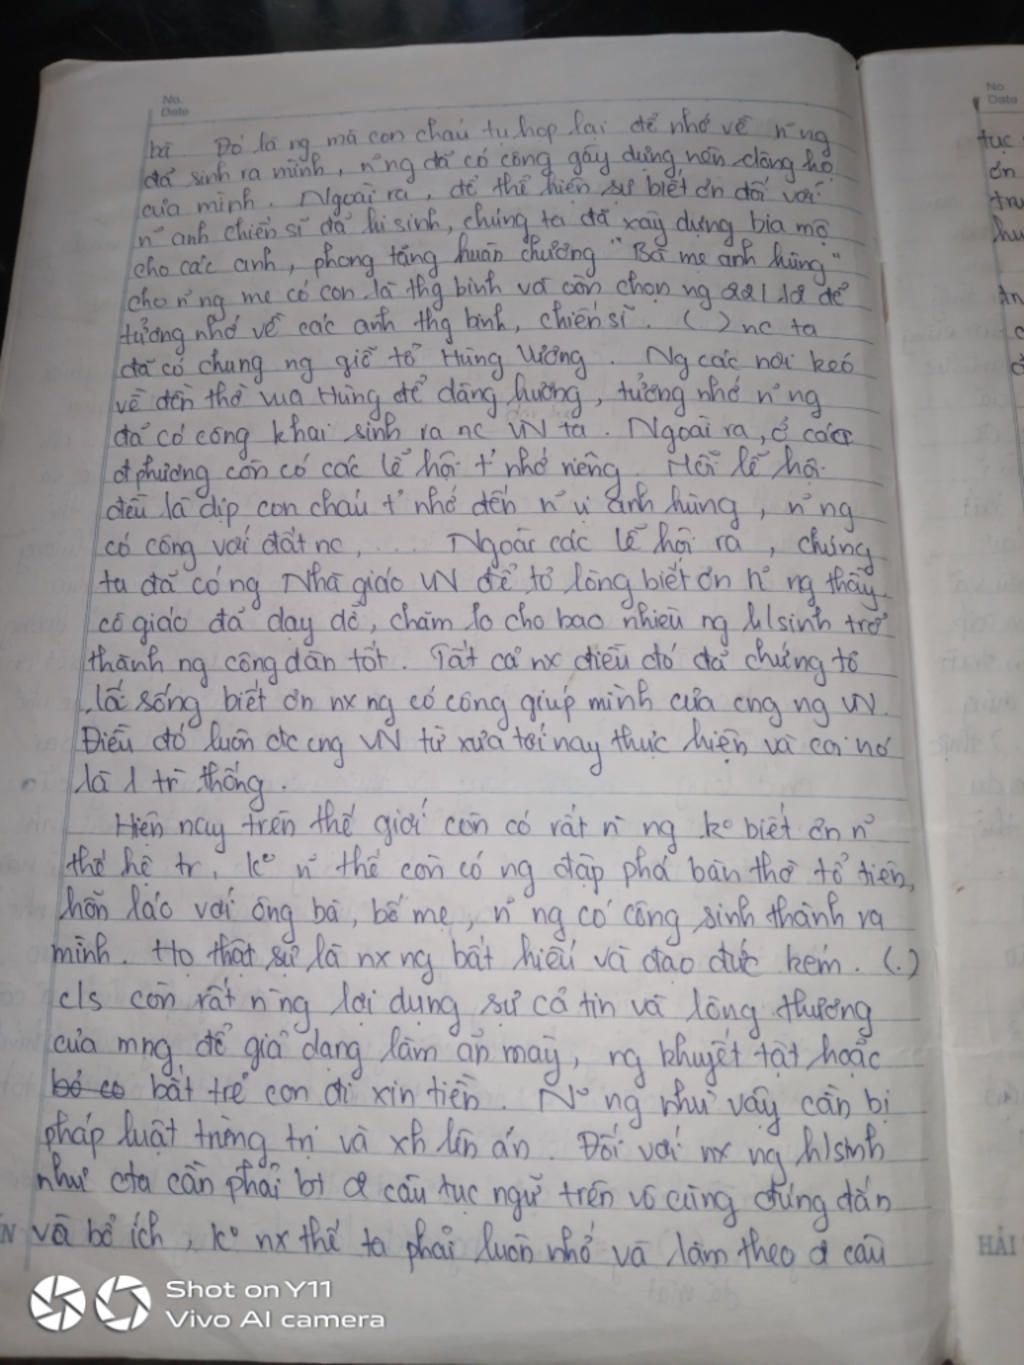 No.
Date
bà Đó là ng mà con cháu tụ họp lại để nhớ về n~ ng
đã sinh ra mình, n~ ng đã có công gây dựng nên dòng họ
của mình. Ngoài ra, để thể hiện sự biết ơn đối với
n~ anh chiến sĩ đã hi sinh, chúng ta đã xây dựng bia mộ
cho các anh, phong tặng huân chương "Bà mẹ anh hùng"
cho n~ ng mẹ có con là thg binh và còn chọn ng 22/12 để
tưởng nhớ về các anh thg binh, chiến sĩ. ( ) nc ta
đã có chung ng giỗ tổ Hùng Vương. Ng các nơi kéo
về đền thờ vua Hùng để dâng hương, tưởng nhớ n~ ng
đã có công khai sinh ra nc VN ta. Ngoài ra, ở các
đ phương còn có các lễ hội t' nhớ riêng. Mỗi lễ hội
đều là dịp con cháu t' nhớ đến n~ vị anh hùng, n~ ng
có công với đất nc, ... Ngoài các lễ hội ra, chúng
ta đã có ng Nhà giáo VN để tỏ lòng biết ơn n~ ng thầy
cô giáo đã dạy dỗ, chăm lo cho bao nhiêu ng h/sinh trở
thành ng công dân tốt. Tất cả nx điều đó đã chứng tỏ
lối sống biết ơn nx ng có công giúp mình của cng ng VN.
Điều đó luôn đc cng VN từ xưa tới nay thực hiện và coi nó
là 1 tr` thống.
Hiện nay trên thế giới còn có rất n` ng ko biết ơn n~
thế hệ tr', ko n~ thế còn có ng đập phá bàn thờ tổ tiên,
hỗn láo với ông bà, bố mẹ, n~ ng có công sinh thành ra
mình. Họ thật sự là nx ng bất hiếu và đạo đức kém. (.)
c/s còn rất n` ng lợi dụng sự cả tin và lòng thương
của mng để giả dạng làm ăn mày, ng khuyết tật hoặc
bắt trẻ con đi xin tiền. N~ ng như vậy cần bị
pháp luật trừng trị và xh lên án. Đối với nx ng h/sinh
như cta cần phải bt đ câu tục ngữ trên vô cùng đúng đắn
và bổ ích, ko nx thế ta phải luôn nhớ và làm theo đ câu
No
Date
tục
ơn
HẢI
Shot on Y11
Vivo AI camera